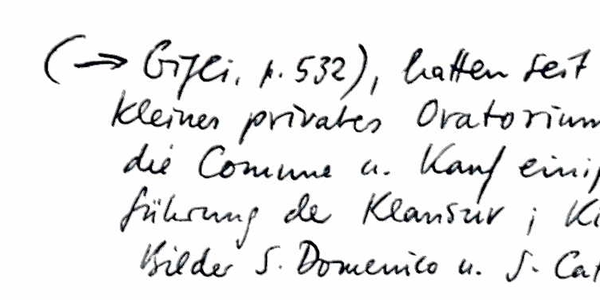 (→ Gigli, p. 532), hatten seit
kleines privates Oratorium
die Comune u. Kauf einig
führung der Klausur; Ki
Bilder S. Domenico u. S. Cat